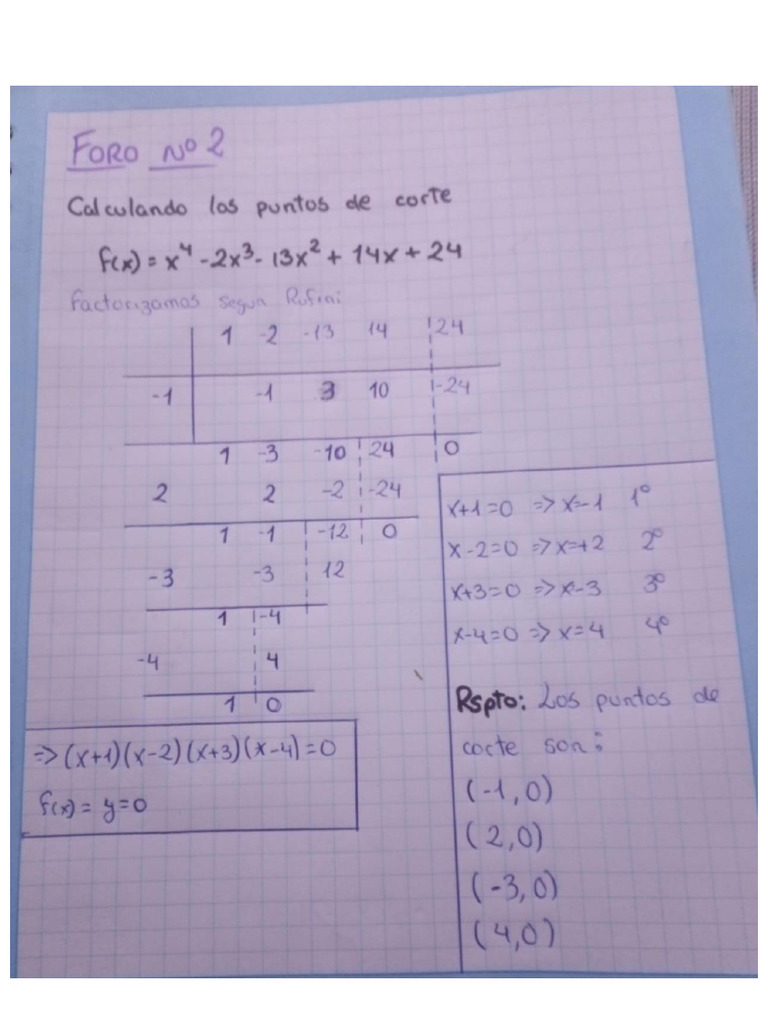 FORO Nº 2
Calculando los puntos de corte
f(x) = x⁴ -2x³ - 13x² + 14x + 24
Factorizamos segun Rufini
1 -2 -13 14 24
-1 -1 3 10 -24
1 -3 -10 24 0
2 2 -2 -24
1 -1 -12 0
-3 -3 12
1 -4
-4 4
1 0
=> (x+1)(x-2)(x+3)(x-4)=0
f(x) = y=0
x+1=0 => x=-1 1º
x-2=0 => x=+2 2º
x+3=0 => x-3 3º
x-4=0 => x=4 4º
Rspto: Los puntos de
corte son:
(-1,0)
(2,0)
(-3,0)
(4,0)